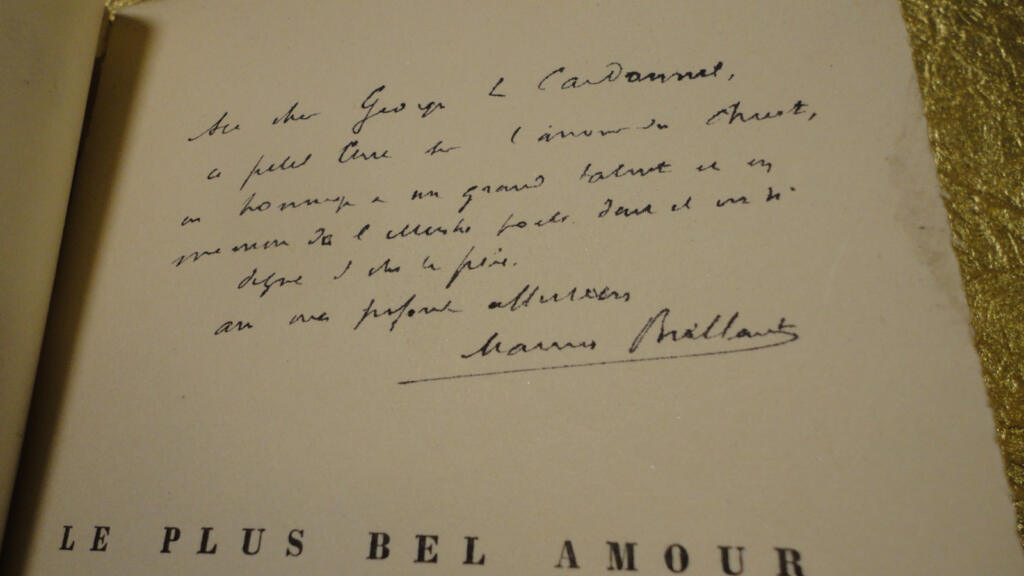 Au cher George L Cardonnel,
ce petit livre sur l'amour du Christ,
en hommage à un grand talent et en
memoire de l'illustre poète dont il est si
digne d être le frère.
avec ma profonde affection
Maurice Brillant
LE PLUS BEL AMOUR